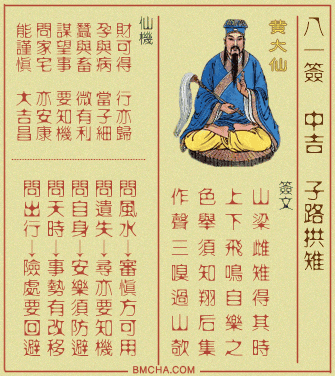 八一簽 中吉 子路拱雉
黄大仙
簽文
山梁雌雉得其時
上下飛鳴自樂之
色舉須知翔后集
作聲三嗅過山欹
仙機
財可得 行亦歸
孕與病 當子細
蠶與畜 微有利
謀望事 要知機
問家宅 亦安康
能謹慎 大吉昌
問風水→審慎方可用
問遺失→尋亦要知機
問自身→安樂須防避
問天時→事勢有改移
問出行→險處要回避
BMCHA.COM